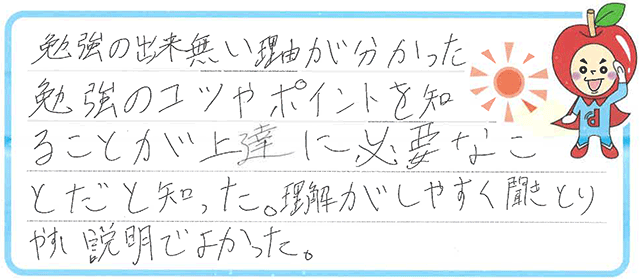 勉強の出来無い理由が分かった
勉強のコツやポイントを知
ることが上達に必要なこ
とだと知った。理解がしやすく聞きとり
やすい説明でよかった。